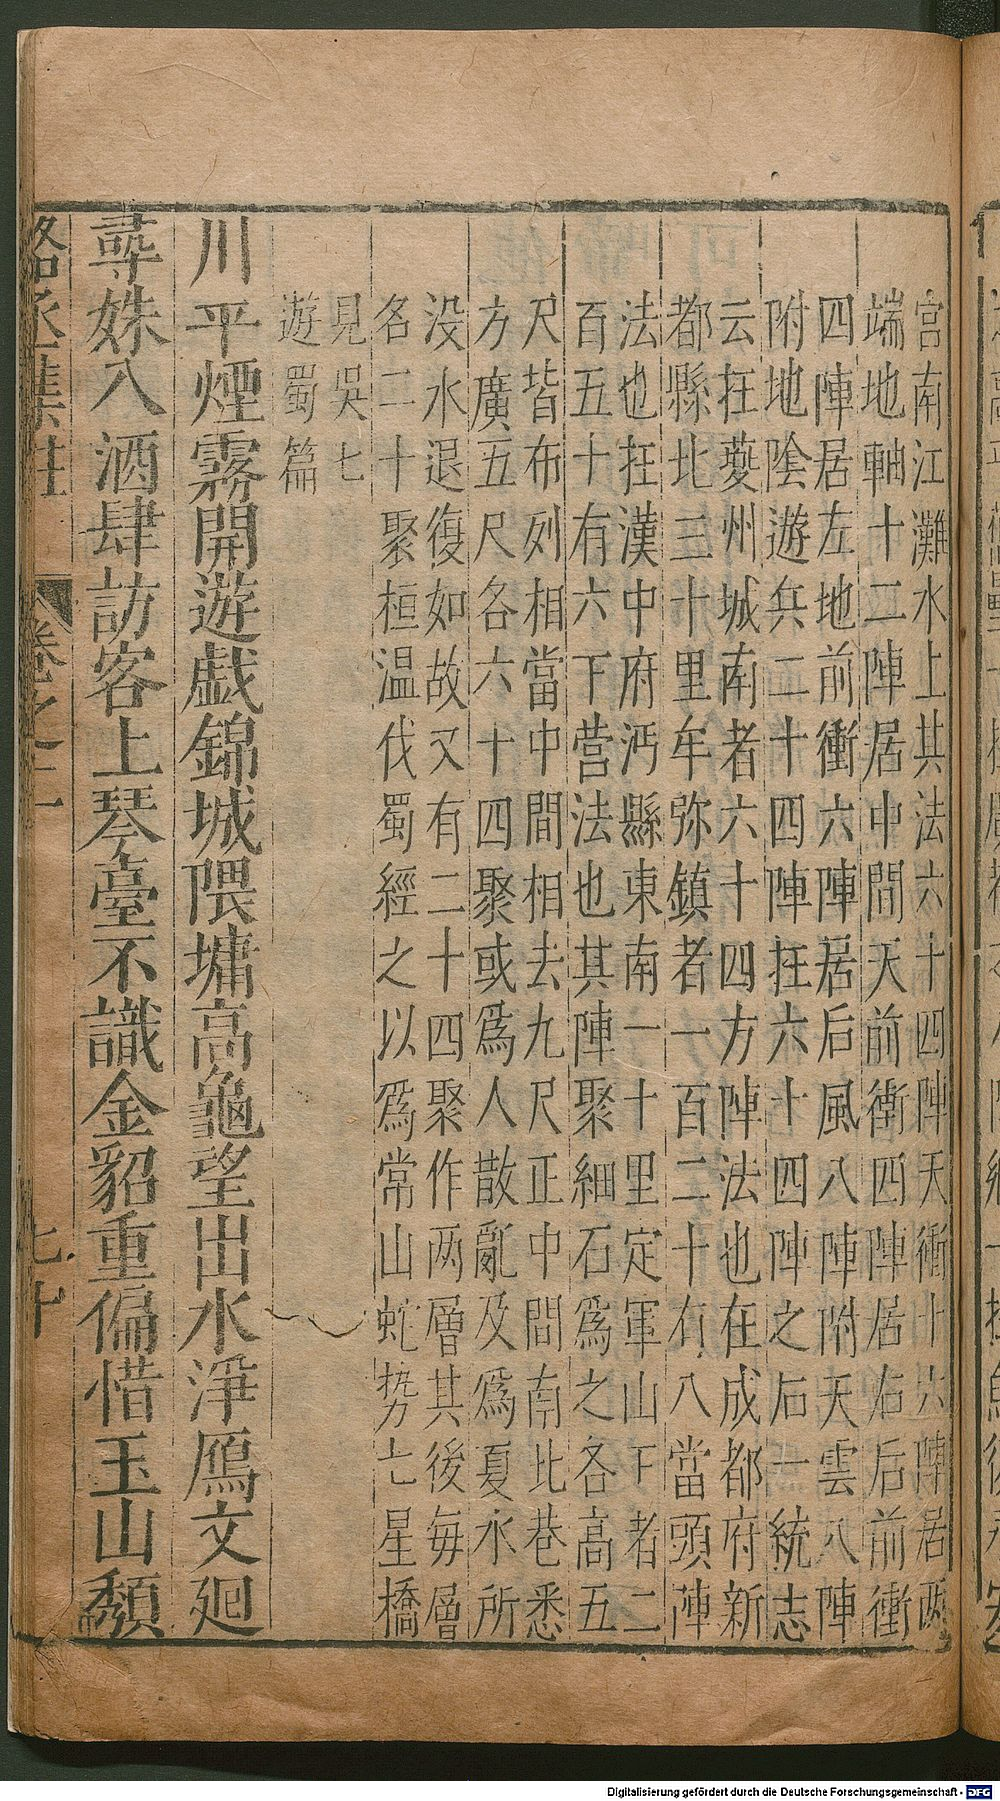 宫南江灘水上其法六十四陣天衝十六陣居兩
端地軸十二陣居中間天前衝四陣居右后前衝
四陣居左地前衝六陣居后風八陣附天雲八陣
附地隂遊兵二十四陣在六十四陣之后一統志
云在夔州城南者六十四方陣法也在成都府新
都縣北三十里牟弥鎮者一百二十有八當頭陣
法也在漢中府沔縣東南一十里定軍山下者二
百五十有六下营法也其陣聚細石為之各高五
尺皆布列相當中間相去九尺正中間南北巷悉
方廣五尺各六十四聚或爲人散亂及爲夏水所
没水退復如故又有二十四聚作两層其後每層
名二十聚桓温伐蜀經之以爲常山蛇势七星橋
見吳七
遊蜀篇
川平煙霧開遊戯錦城隈墉高龜望出水淨鴈文廻
尋姝入酒肆訪客上琴臺不識金貂重偏惜玉山頹
駱丞集註 卷之二 七十
Digitalisierung gefördert durch die Deutsche Forschungsgemeinschaft - DFG